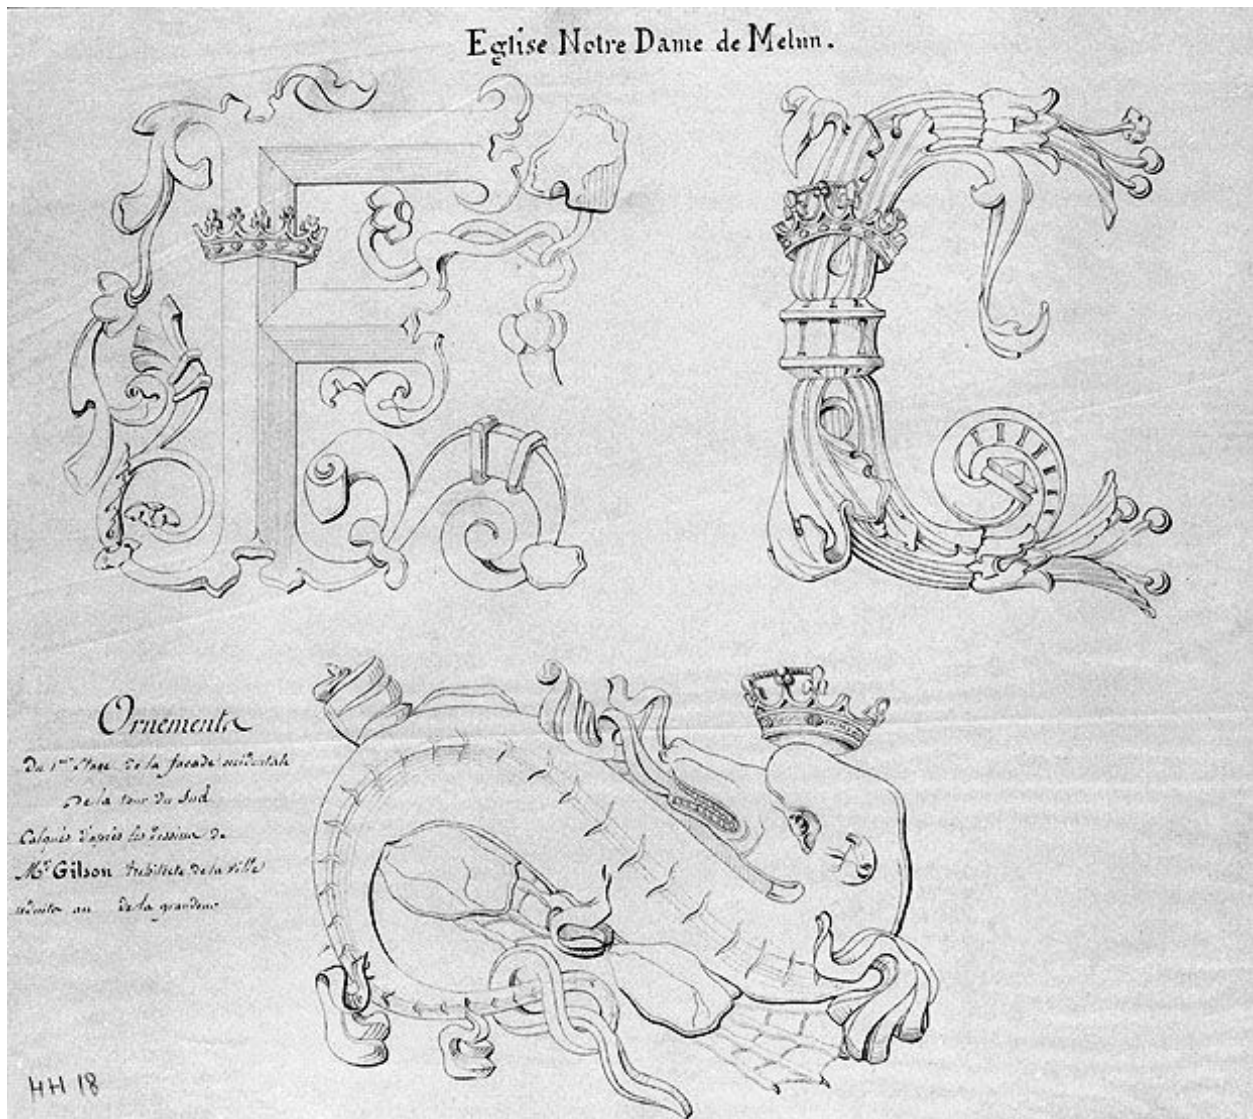 Eglise Notre Dame de Melun.
Ornements
Du 1er Etage de la façade occidentale
De la tour du Sud
Calqués d'après les dessins de
Mr Gilson Architecte de la Ville
au de la grandeur
HH 18